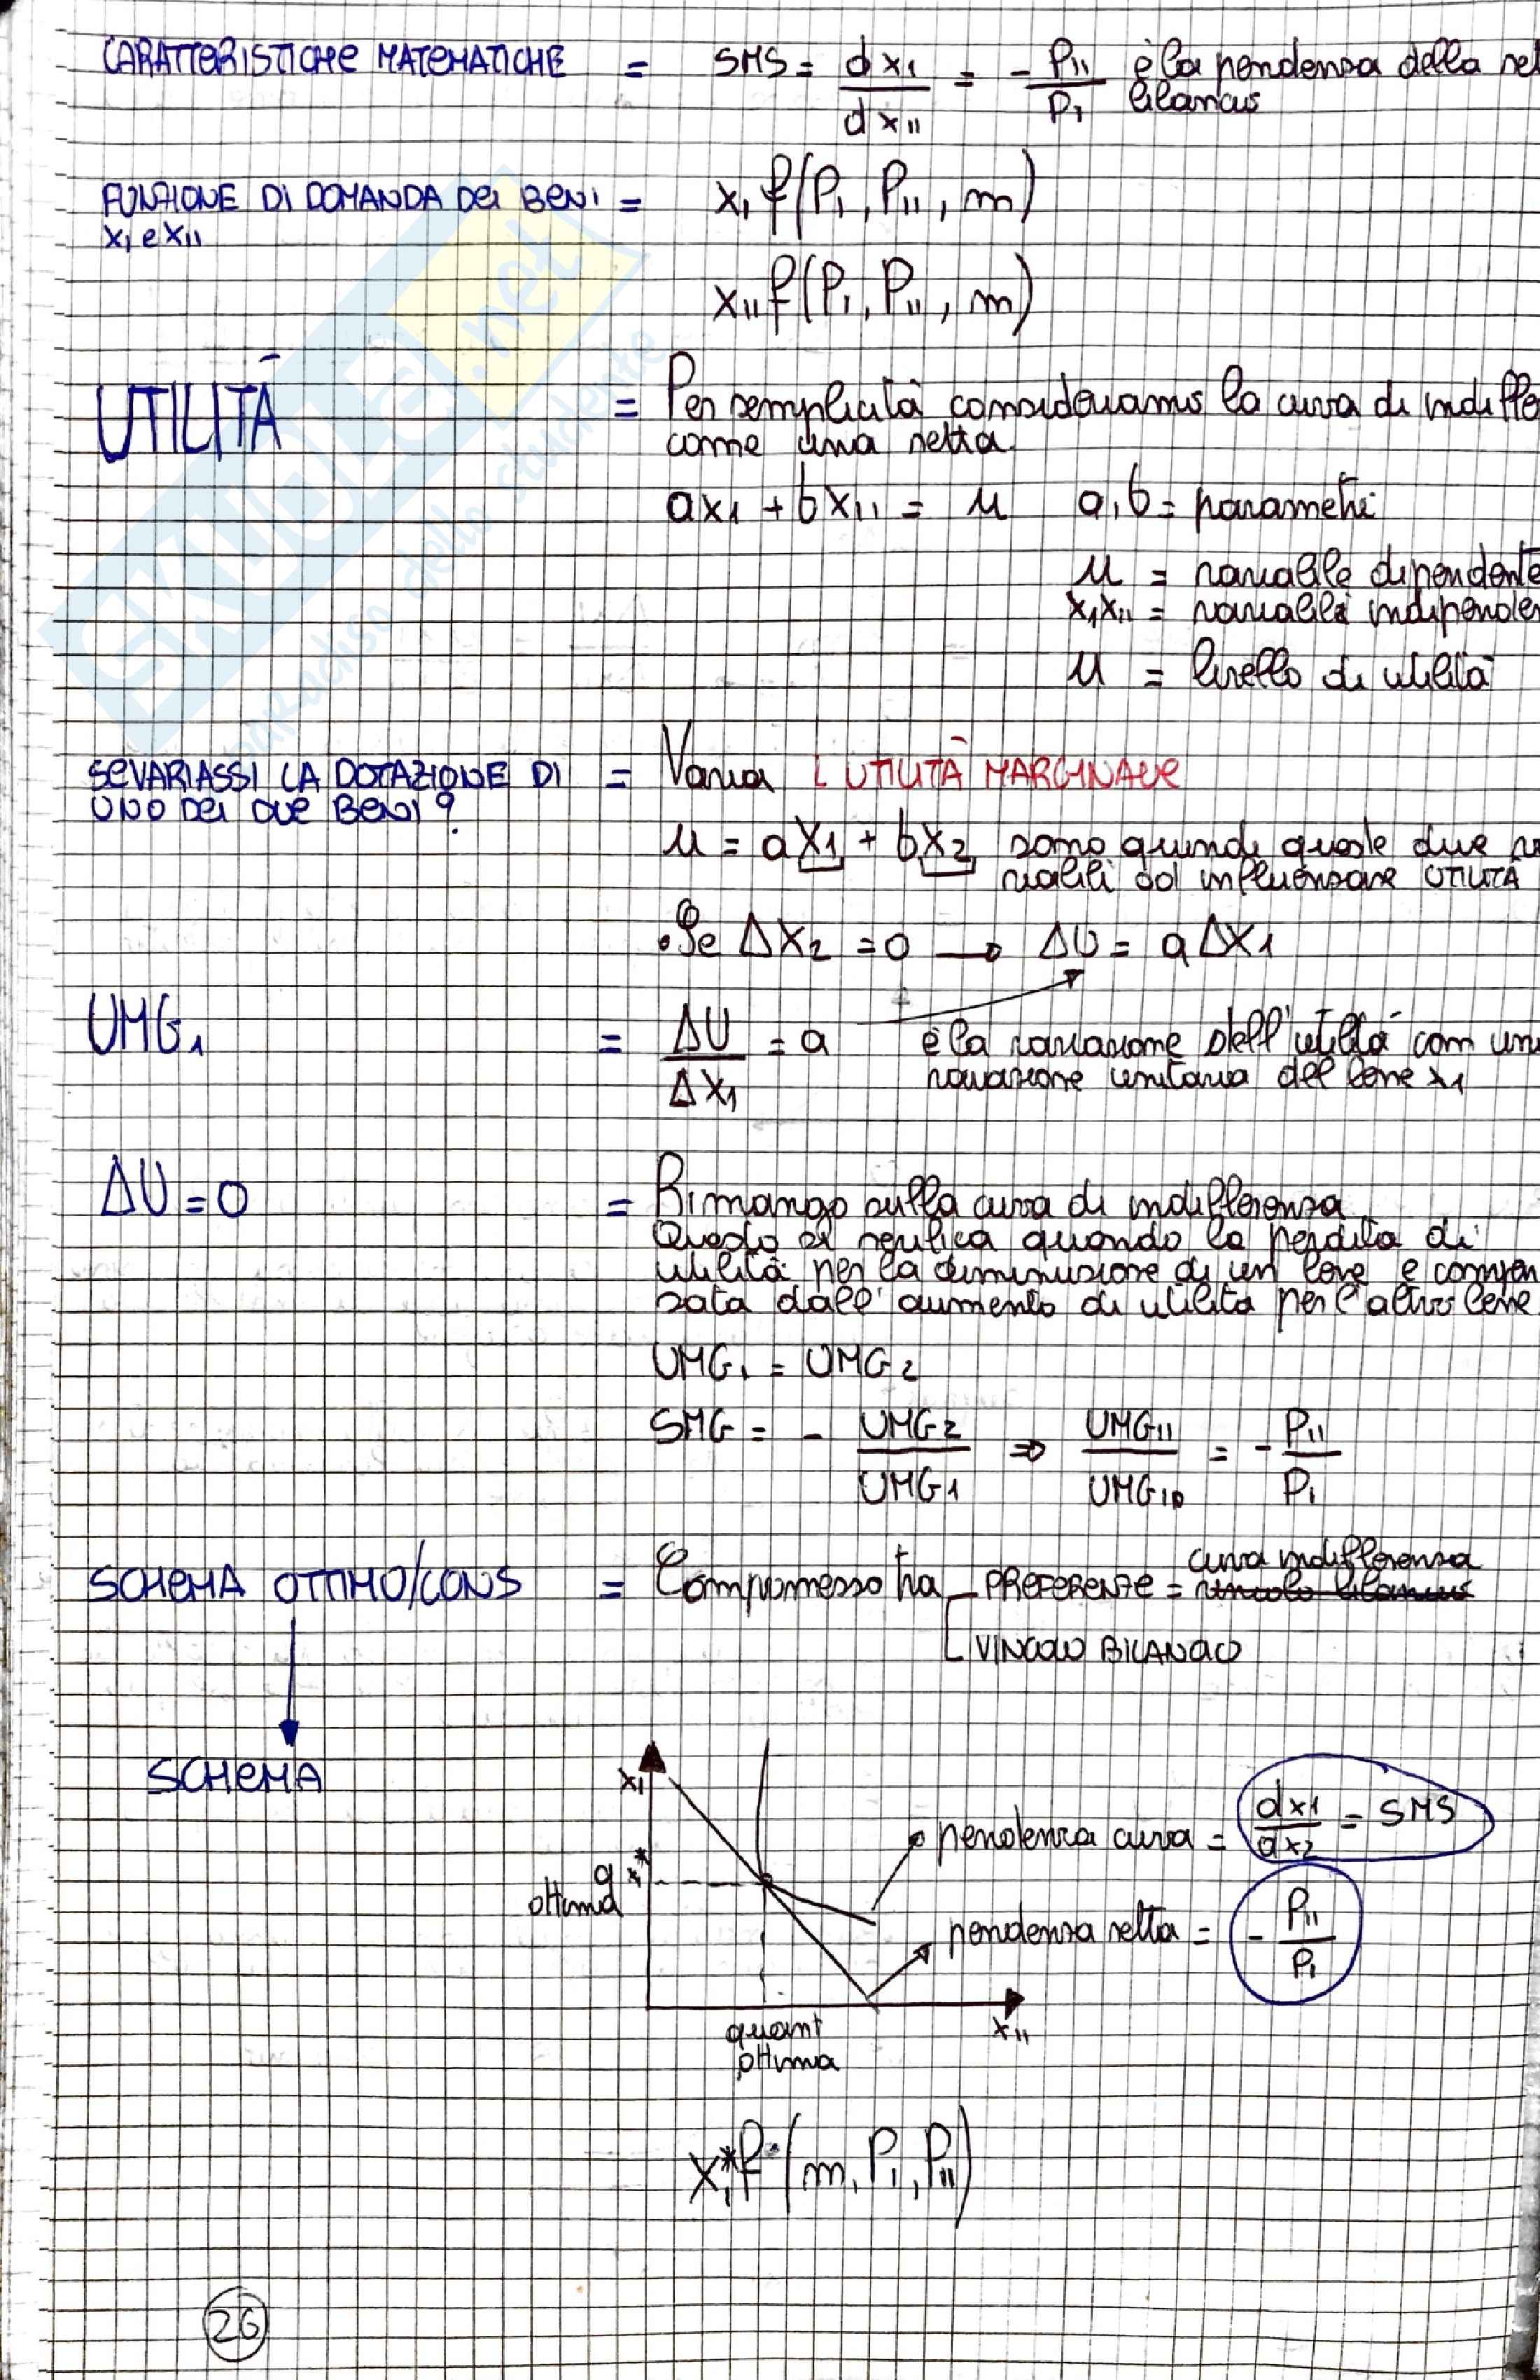 CARATTERISTICHE MATEMATICHE = SMS = dx₁/dx₁₁ = - P₁₁/P₁ è la pendenza della ret
bilancio
FUNZIONE DI DOMANDA DEI BENI = x₁ f(P₁, P₁₁, m)
x₁ e x₁₁
x₁₁ f(P₁, P₁₁, m)
UTILITÀ = Per semplicità consideriamo la curva di indiffe
come una retta.
ax₁ + bx₁₁ = u a,b = parametri
u = variabile dipendente
x₁x₁₁ = variabili indipenden
u = livello di utilità
SE VARIASSI LA DOTAZIONE DI = Varia L UTILITÀ MARGINALE
UNO DEI DUE BENI?
u = ax₁ + bx₂ sono quindi queste due va
riabili ad influenzare UTILITÀ
• Se Δx₂ = 0 → ΔU = aΔx₁
UMG₁ = ΔU/Δx₁ = a è la variazione dell'utilità con un
variazione unitaria del bene x₁
ΔU = 0 = Rimango sulla curva di indifferenza
Questo si verifica quando la perdita di
utilità per la diminuzione di un bene e compen
sata dall'aumento di utilità per l'altro bene
UMG₁ = UMG₂
SMG = - UMG₂/UMG₁ ⇒ UMG₁₁/UMG₁ = - P₁₁/P₁
SCHEMA OTTIMO/CONS = Compromesso tra PREFERENZE = curva indifferenza vincolo bilancio
VINCOLO BILANCIO
SCHEMA
x₁
pendenza curva = dx₁/dx₂ = SMS
q x₁*
ottima
pendenza retta = - P₁₁/P₁
quant
ottima
x₁₁
x₁* f (m, P₁, P₁₁)
26
SKUOLA.net
paradiso dello studente